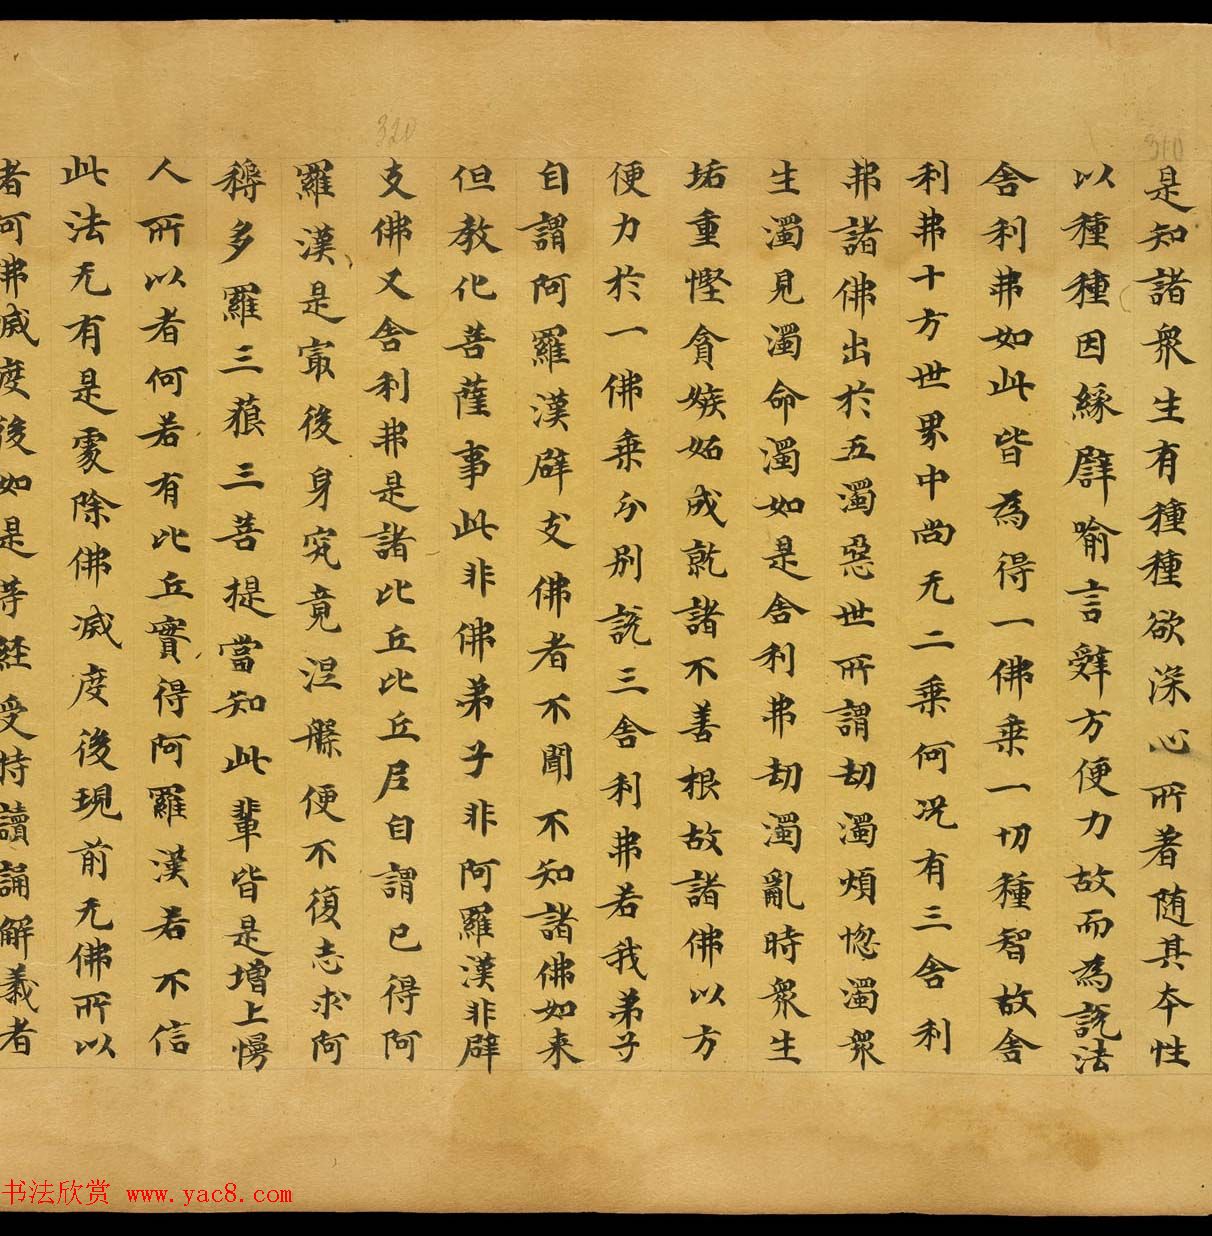 是知諸衆生有種種欲深心所著随其本性
以種種因緣譬喻言辤方便力故而為說法
舎利弗如此皆為得一佛乗一切種智故舎
利弗十方世界中尚无二乗何况有三舎利
弗諸佛出於五濁惡世所謂劫濁煩惚濁衆
生濁見濁命濁如是舎利弗劫濁亂時衆生
垢重慳貪嫉妬成就諸不善根故諸佛以方
便力於一佛乗分別說三舎利弗若我弟子
自謂阿羅漢辟支佛者不聞不知諸佛如来
但教化菩薩事此非佛弟子非阿羅漢非辟
支佛又舎利弗是諸比丘比丘尼自謂已得阿
羅漢是冣後身究竟涅槃便不復志求阿
耨多羅三藐三菩提當知此輩皆是增上慢
人所以者何若有比丘實得阿羅漢若不信
此法无有是處除佛滅度後現前无佛所以
者何佛滅度後如是等経受持讀誦解義者
310
320
书法欣赏 www.yac8.com